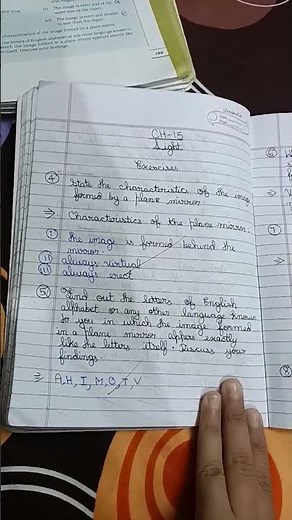 (i) The image is erect and of the
same size as the object.
(ii) The image is erect and smaller
in size than the object.
characteristics of the image formed by a plane mirror.
the letters of English alphabet or any other language known to
which the image formed in a plane mirror appears exactly like
er itself. Discuss your findings.
189
CH-15
Light
Exercises
④ State the characteristics of the image
formed by a plane mirror
⇒ Characteristics of the plane mirror:
(i) the image is formed behind the
mirror.
(ii) always virtual
(iii) always erect
⑤ Find out the letters of English
alphabet or any other language known
to you in which the image formed
in a plane mirror appers exactly
like the letters itself. Discuss your
findings.
⇒ A, H, I, M, O, T, V
⑥
⇒
⑦
⑧